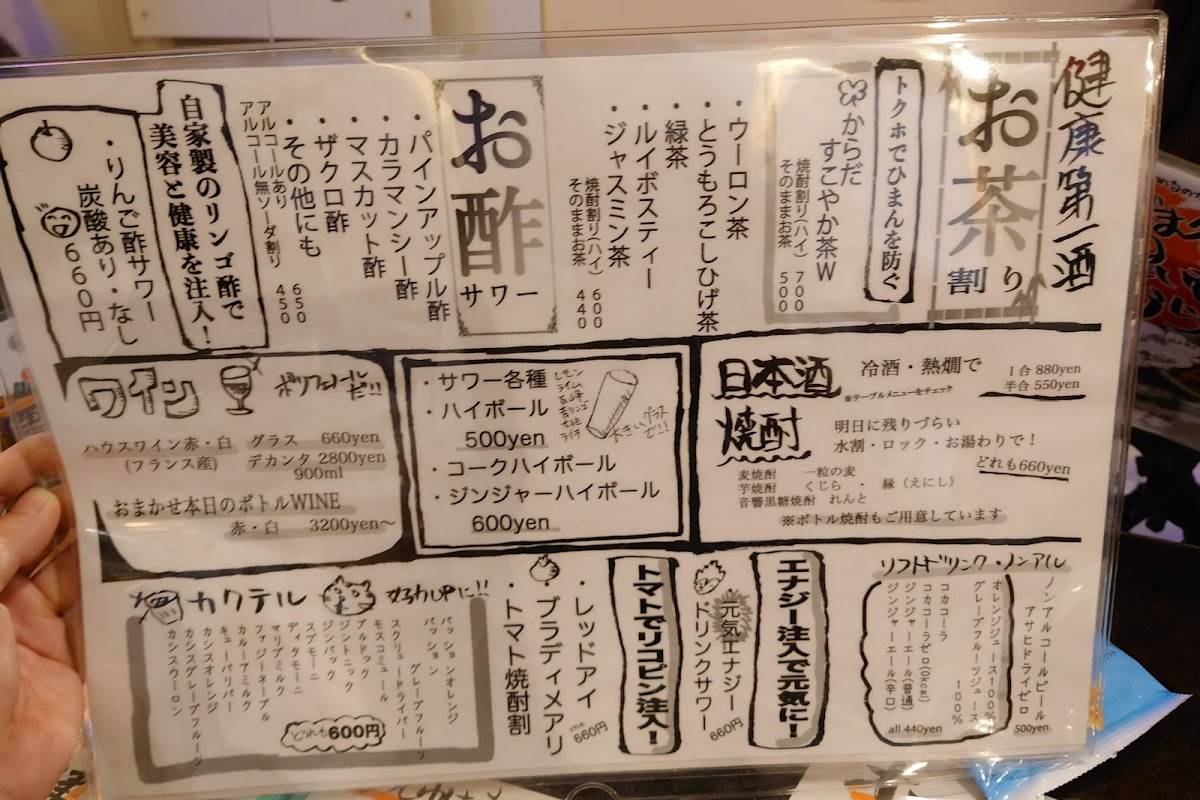 健康第一酒
お茶割り
トクホでひまんを防ぐ
からだ
すこやか茶W
焼酎割り(ハイ) 700
そのままお茶 500
・ウーロン茶
・とうもろこしひげ茶
・緑茶
・ルイボスティー
・ジャスミン茶
焼酎割り(ハイ) 600
そのままお茶 440
お酢
サワー
・パインアップル酢
・カラマンシー酢
・マスカット酢
・ザクロ酢
・その他にも
アルコールあり 650
アルコール無ソーダ割り 450
自家製のリンゴ酢で
美容と健康を注入!
・りんご酢サワー
炭酸あり・なし
660円
日本酒
冷酒・熱燗で
※テーブルメニューをチェック
1合 880yen
半合 550yen
焼酎
明日に残りづらい
水割・ロック・お湯わりで!
どれも660yen
麦焼酎 一粒の麦
芋焼酎 くじら ・ 縁(えにし)
音響黒糖焼酎 れんと
※ボトル焼酎もご用意しています
・サワー各種
レモン
ライム
青りんご
ライチ
・ハイボール
500yen
大きいグラスで!!
・コークハイボール
・ジンジャーハイボール
600yen
ワイン
ポリフェノールだ!!
ハウスワイン赤・白 グラス 660yen
(フランス産) デカンタ 2800yen
900ml
おまかせ本日のボトルWINE
赤・白 3200yen~
ソフトドリンク・ノンアル
ノンアルコールビール
アサヒドライゼロ
500yen
オレンジジュース100%
グレープフルーツジュース
100%
コカコーラ
コカコーラゼロ(0kcal)
ジンジャーエール(普通)
ジンジャーエール(辛口)
all 440yen
エナジー注入で元気に!
元気エナジー
ドリンクサワー
660円
トマトでリコピン注入!
・レッドアイ
・ブラディメアリ
・トマト焼酎割
どれも660円
カクテル
女子力UPに!!
パッションオレンジ
パッション
グレープフルーツ
スクリュードライバー
モスコミュール
ブルドック
ジントニック
ジンバック
スプモーニ
ディタモーニ
マリブミルク
ファジーネーブル
カルーアミルク
キューバリバー
カシスオレンジ
カシスグレープフルーツ
カシスウーロン
どれも600円